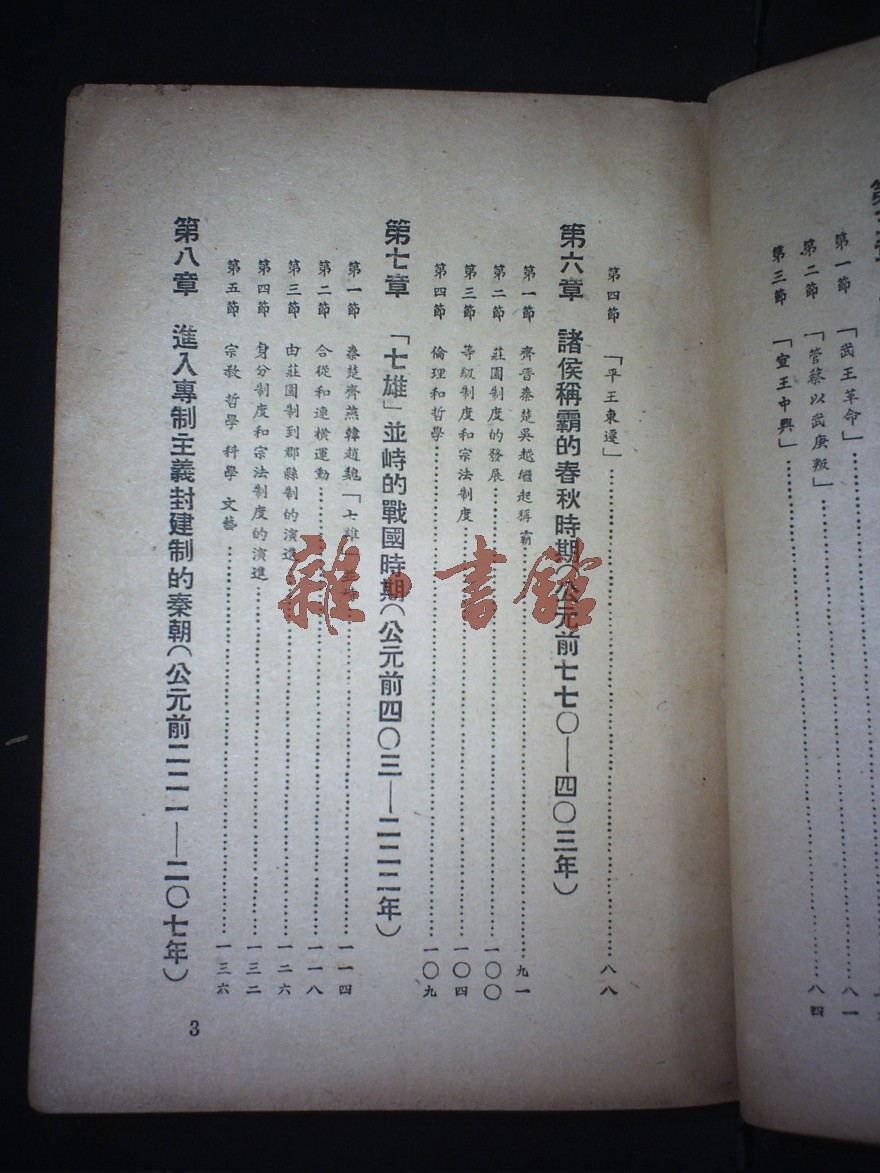 第一節　「武王革命」……八一
第二節　「管蔡以武庚叛」……八四
第三節　「宣王中興」……
第四節　「平王東遷」……八八
第六章　諸侯稱霸的春秋時期(公元前七七〇—四〇三年)
第一節　齊晉秦楚吳越繼起稱霸……九一
第二節　莊園制度的發展……一〇〇
第三節　等級制度和宗法制度……一〇四
第四節　倫理和哲學……一〇九
第七章　「七雄」並峙的戰國時期(公元前四〇三—二二二年)
第一節　秦楚齊燕韓趙魏「七雄」……一一四
第二節　合從和連橫運動……一一八
第三節　由莊園制到郡縣制的演進……一二六
第四節　身分制度和宗法制度的演進……一三二
第五節　宗教　哲學　科學　文藝……一三六
第八章　進入專制主義封建制的秦朝(公元前二二一—二〇七年)
3
雜·書館